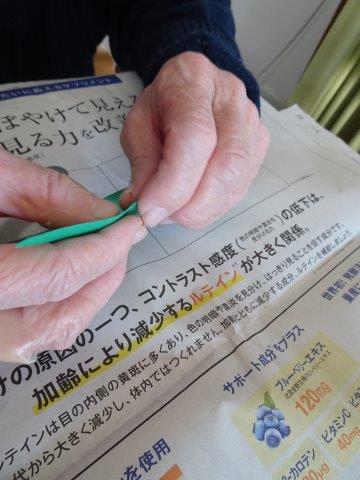 たいに応えるサプリメント
ぼやけて見え
見る力を改
けの原因の一つ、コントラスト感度(色の明暗や濃淡を見分ける力)の低下は、
加齢により減少するルテインが大きく関係。
ルテインは目の内側の黄斑に多くあり、色の明暗や濃淡を見分け、はっきり見ることを促す成分です。
代から大きく減少し、体内ではつくれません。加齢とともに減少する成分、ルテインを補給しましょう
サポート成分をプラス
ブルーベリーエキス
120mg
ビタミンC
40mg
ビタミン
β-カロテン
を使用
世界初